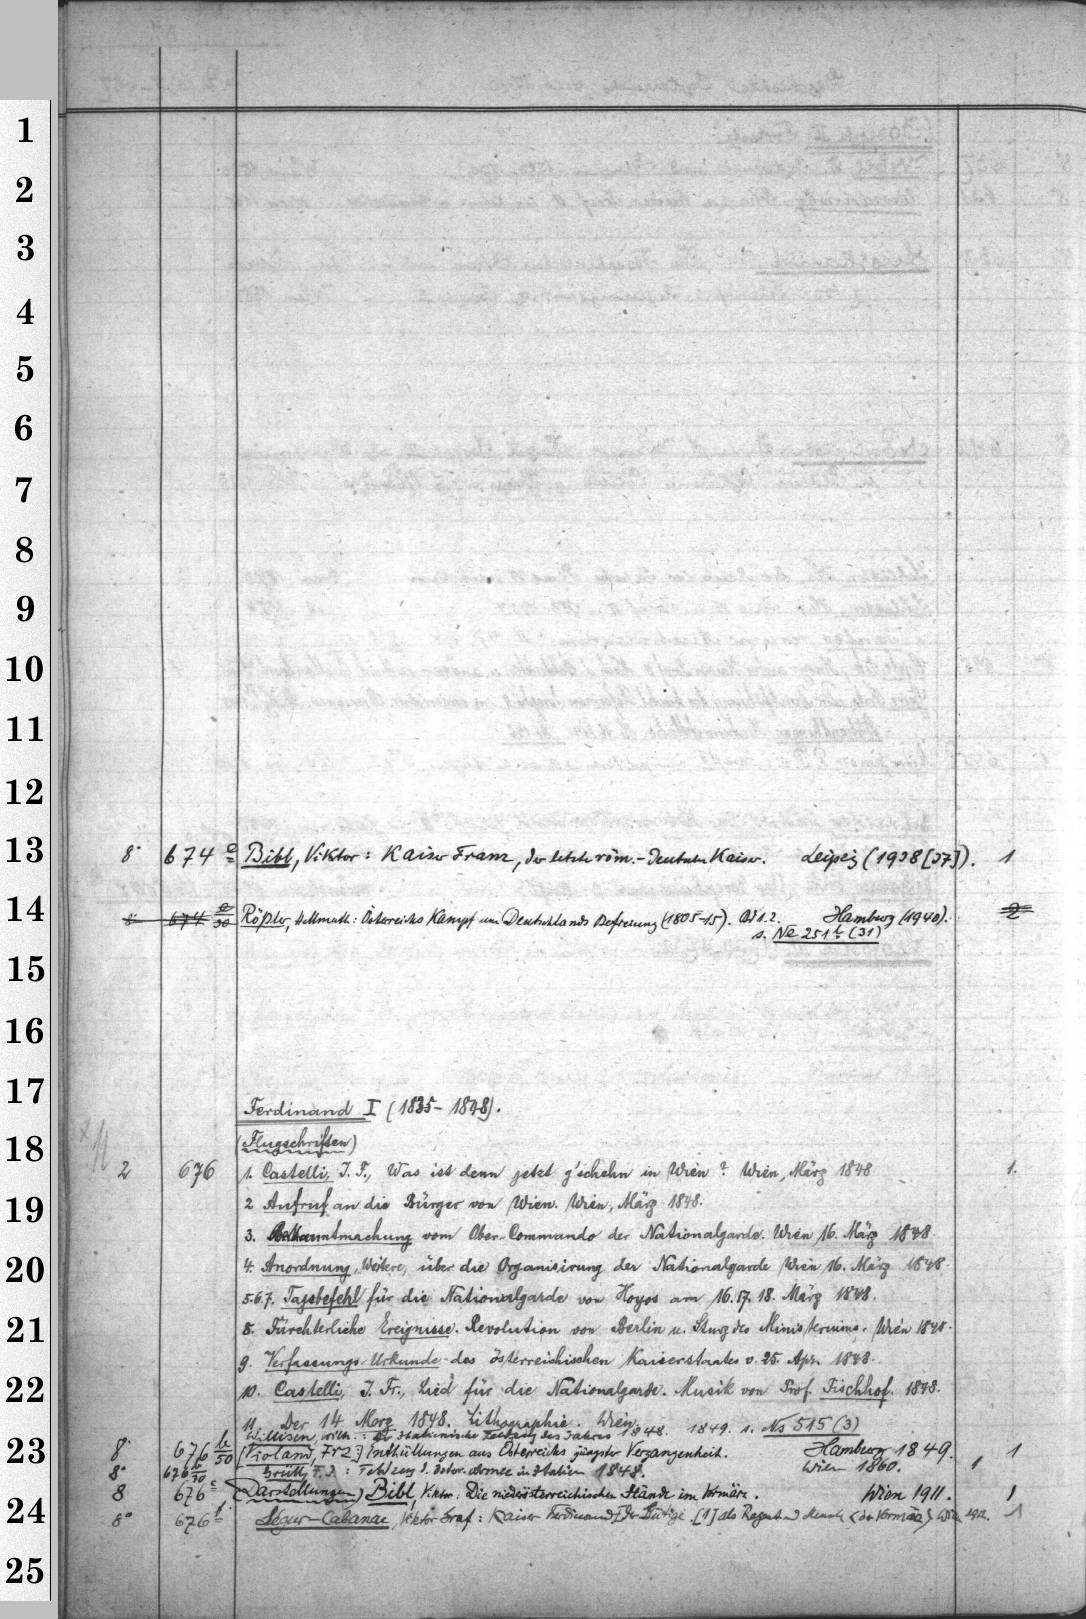 1
2
3
4
5
6
7
8
9
10
11
12
13
8° 674 e Bibl, Viktor: Kaiser Franz, der letzte röm.-Deutsche Kaiser. Leipzig (1938 [37]). 1
14
8° 674 e/30 Rößler, Hellmuth: Österreichs Kampf um Deutschlands Befreiung (1805-15). Bd 1. 2. Hamburg (1940). 2
s. Ne 251 (31)
15
16
17
Ferdinand I (1835-1848).
18
(Flugschriften)
2 676 1. Castelli, I. F., Was ist denn jetzt g'schehn in Wien? Wien, März 1848 1.
19
2 Aufruf an die Bürger von Wien. Wien, März 1848.
3. Bekanntmachung vom Ober-Commando der Nationalgarde. Wien 16. März 1848.
20
4. Anordnung, Weitere, über die Organisirung der Nationalgarde Wien 16. März 1848.
5.6.7. Tagsbefehl für die Nationalgarde von Hoyos am 16. 17. 18. März 1848.
21
8. Fürchterliche Ereignisse. Revolution von Berlin u. Sturz des Ministeriums. Wien 1848.
9. Verfassungs-Urkunde des österreichischen Kaiserstaates v. 25. Apr. 1848.
22
10. Castelli, I. Fr., Lied für die Nationalgarde. Musik von Prof. Fischhof. 1848.
11. Der 14 März 1848. Lithographie. Wien.
Willisen, Wilh.: Italienische Feldzug des Jahres 1848. 1849. s. No 515 (3)
23
8° 676 b/50 [Violand, Frz:] Enthüllungen aus Österreichs jüngster Vergangenheit. Hamburg 1849. 1
8° 676 b/70 Grüll, F. J.: Feldzug d. österr. Armee in Italien 1848. Wien 1860. 1
8 676 c (Darstellungen) Bibl, Viktor: Die niederösterreichischen Stände im Vormärz. Wien 1911. 1
24
8° 676 f Ségur-Cabanac, Viktor Graf: Kaiser Ferdinand I der Gütige [I] als Regent u Mensch (der Vormärz) Wien 1912. 1
25